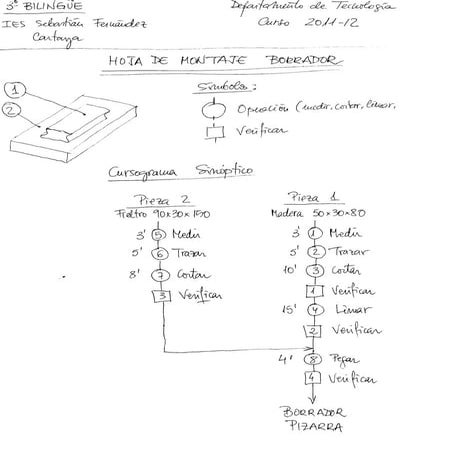 3º BILINGÜE
Departamento de Tecnología
IES Sebastián Fernández
Curso 2011-12
Cartaya
HOJA DE MONTAJE BORRADOR
1
2
Símbolos:
Operación (medir, cortar, limar,
Verificar
Cursograma Sinóptico
Pieza 2
Fieltro 90x30x150
3' 5 Medir
5' 6 Trazar
8' 7 Cortar
3 Verificar
Pieza 1
Madera 50x30x80
3' 1 Medir
5' 2 Trazar
10' 3 Cortar
1 Verificar
15' 4 Limar
2 Verificar
4' 8 Pegar
4 Verificar
BORRADOR
PIZARRA